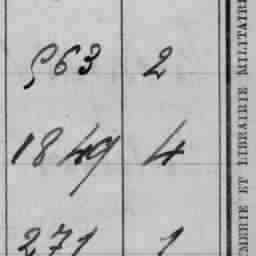 963 2
1849 4
271 1
MERIE ET LIBRAIRIE MILITAIRE